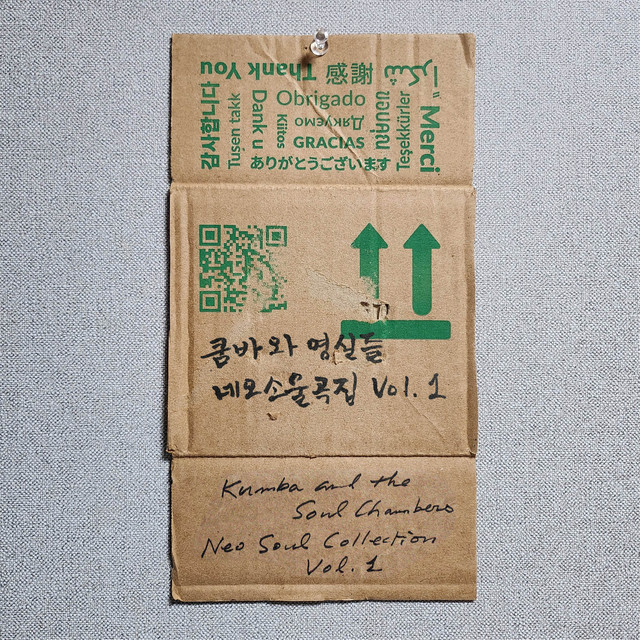 Thank You
感謝
شكراً
감사합니다
Tusen takk
Dank u
Obrigado
Kiitos
Дякуємо
GRACIAS
ขอบคุณ
Teşekkürler
Merci
ありがとうございます
쿰바와 영실들
네오소울곡집 Vol. 1
Kumba and the
Soul Chambers
Neo Soul Collection
Vol. 1